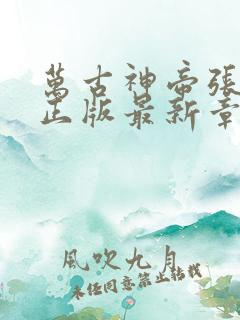 萬古神帝張
正版最新章
風吹九月
未經同意禁止轉載